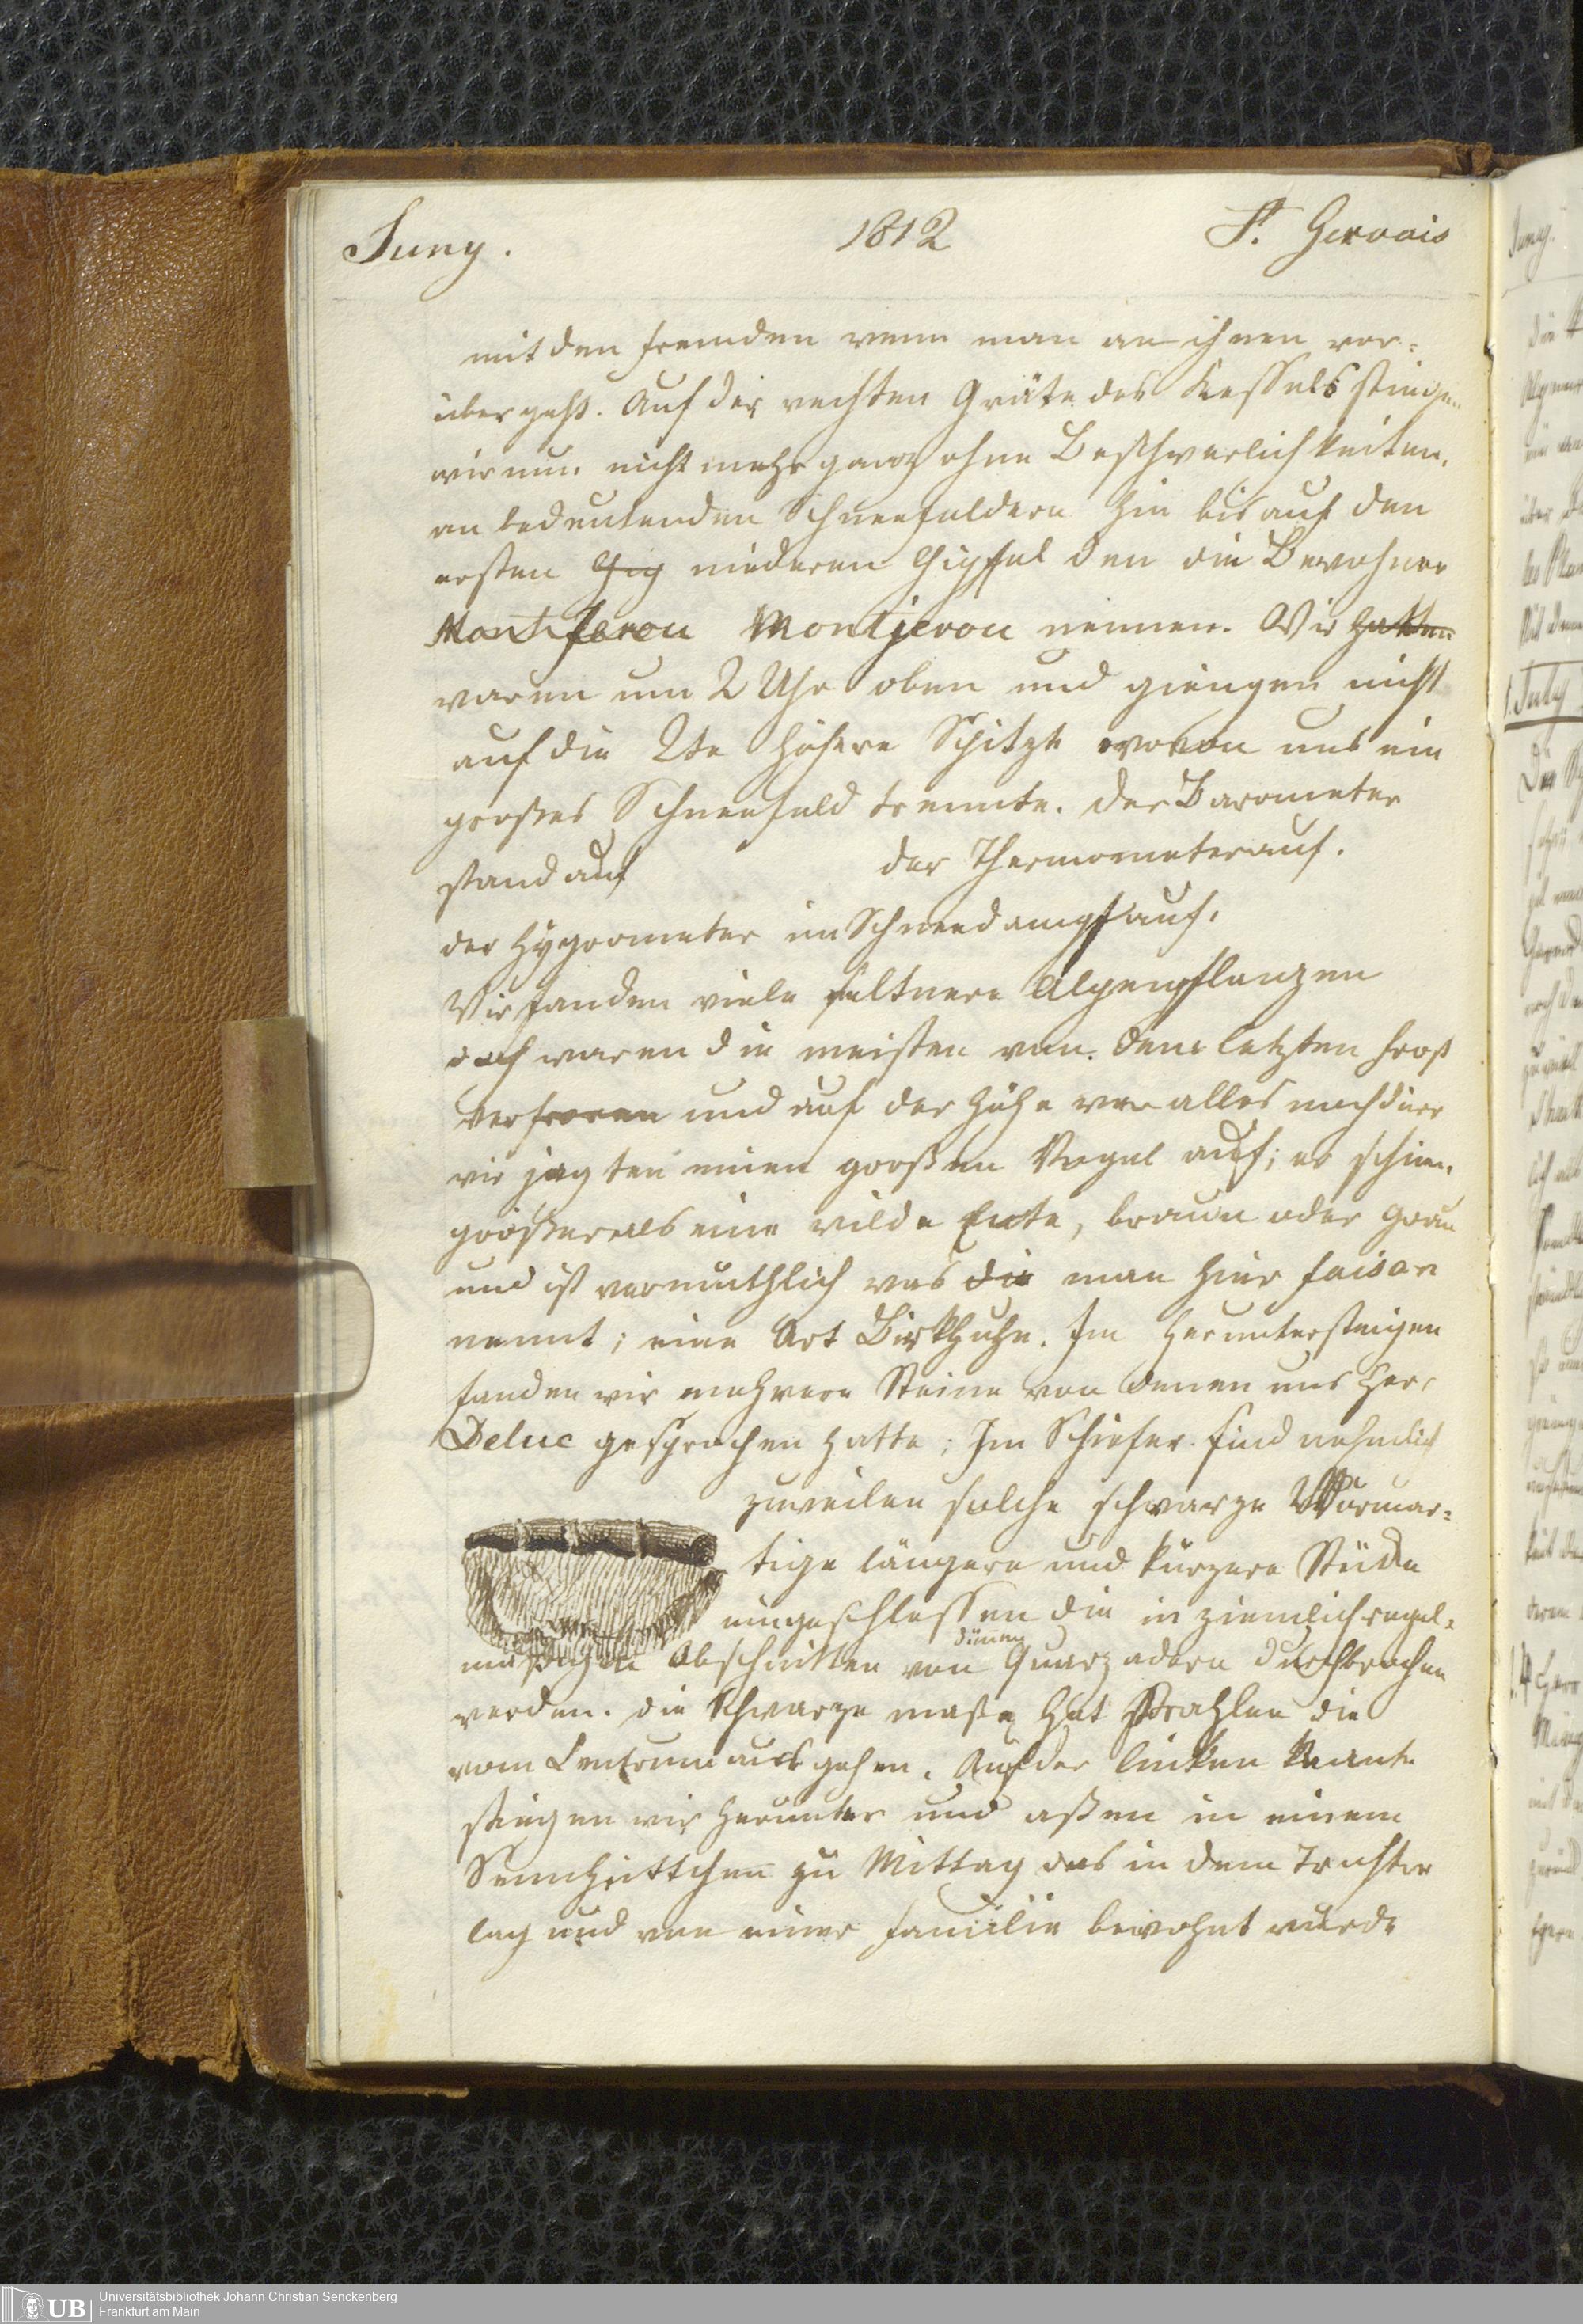 Juny.
1812
St. Gervais
mit den fremden wenn man an ihnen vor=
übergeht. Auf der rechten Gräte des Kessels stiegen
wir nun nicht mehr ganz ohne Beschwerlichkeiten,
an bedeutenden Schneefeldern hin bis auf den
ersten Gip niederen Gipfel den die Bewohner
Montjerou Montjerou nennen. Wir hatten
waren um 2 Uhr oben und giengen nicht
auf die 2te höhere Spitze wovon uns ein
großes Schneefeld trennte. der Barometer
stand auf der Thermometer auf.
der Hygrometer im Schneedampf auf.
Wir fanden viele seltnere Alpenpflanzen
doch waren die meisten von dem letzten Frost
verfroren und auf der Höhe war alles noch dürr
wir jagten einen großen Vogel auf; er schien
größer als eine wilde Ente, braun oder grau
und ist vermuthlich was die man hier faisan
nennt; eine Art Birkhuhn. Im heruntersteigen
fanden wir mehrere Steine von denen uns Herr
Deluc gesprochen hatte; Im Schiefer sind nehmlich
zuweilen solche schwarze Wurmar=
tige längere und kürzere Stücke
eingeschlossen die in ziemlich regel=
mäßigen Abschnitten von dünnen Quarzadern durchbrochen
werden. die Schwarze maße hat Strahlen die
vom Centrum ausgehen. Auf der linken Kante
stiegen wir herunter und aßen in einem
Sennhüttchen zu Mittag das in dem Trichter
lag und von einer familie bewohnt wurde
UB
Universitätsbibliothek Johann Christian Senckenberg
Frankfurt am Main